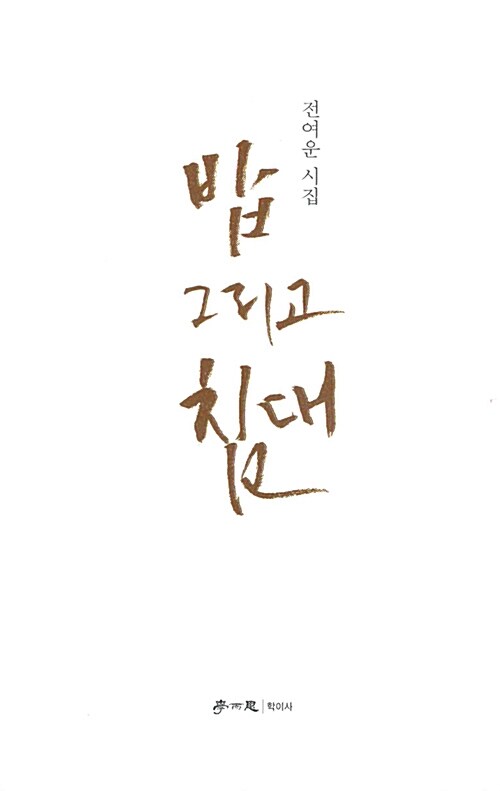 전여운 시집
밥
그리고
침대
學而思 | 학이사